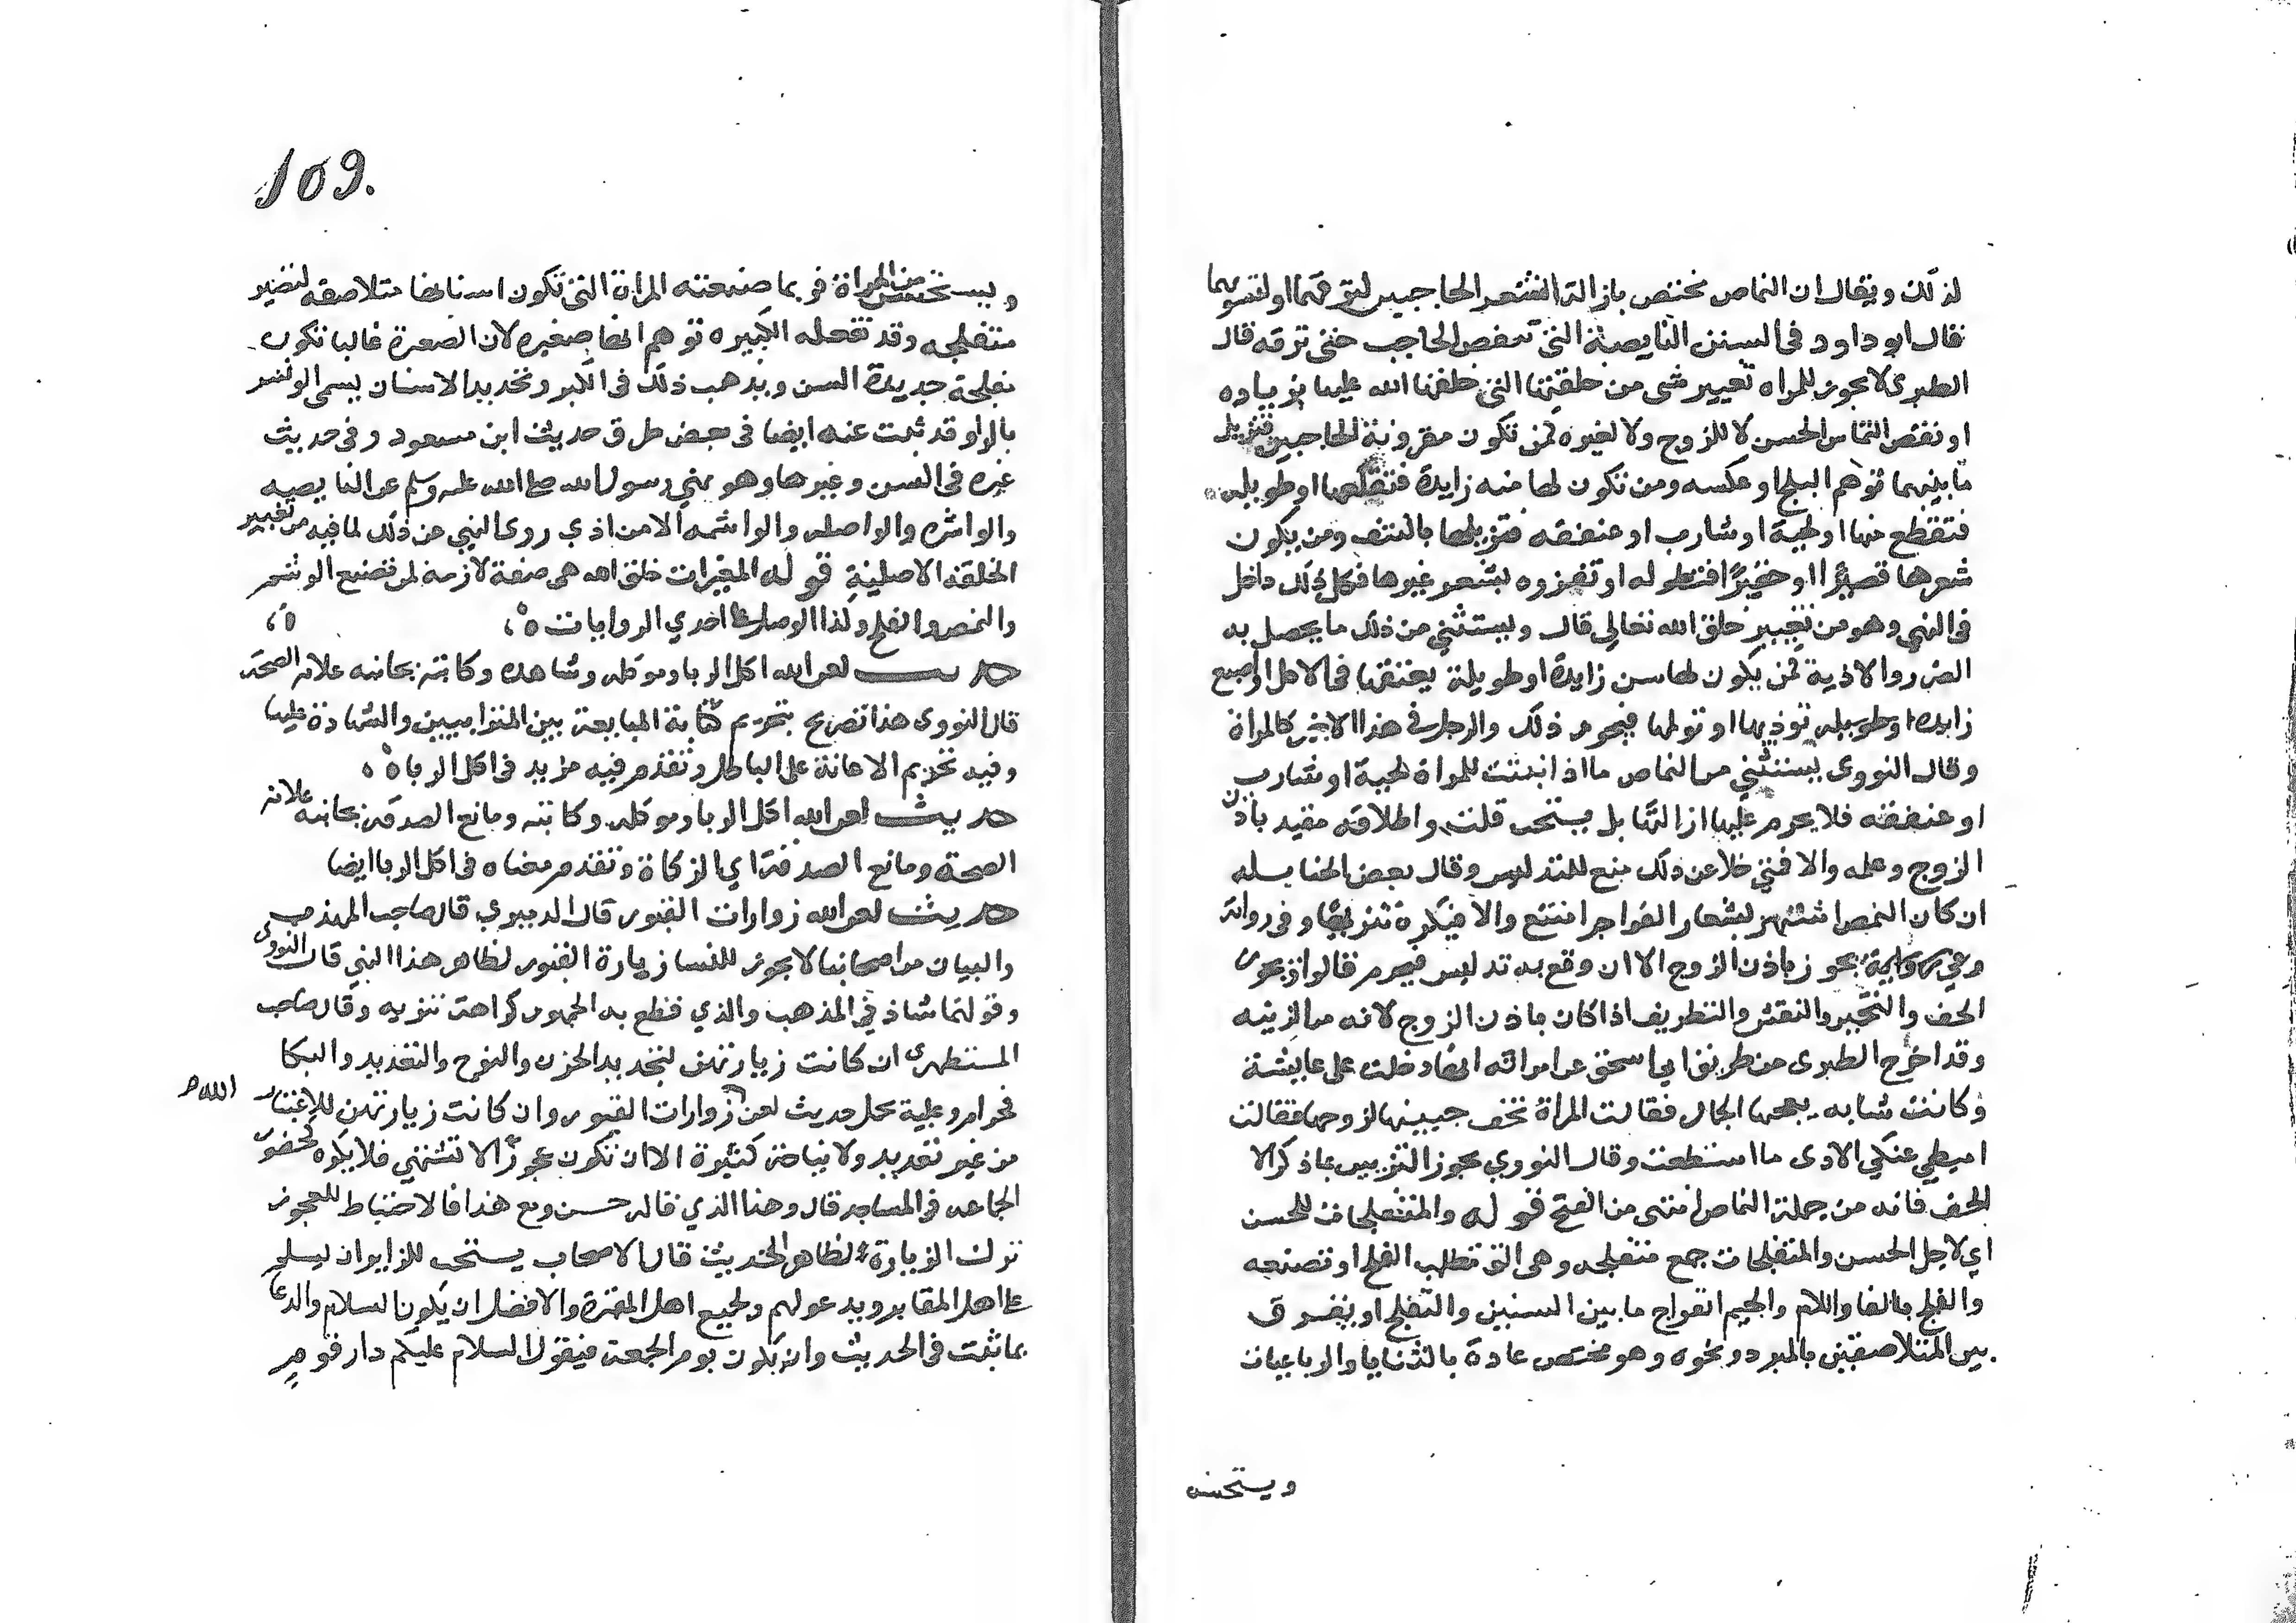 لذلك ويقال ان النماص يختص بازالة الشعر الحاجبين لترقهما او لتسويهما
قال ابو داود في السنن النامصة التي تنمص الحاجب حتى ترقه قال
الطبري لا يجوز للمراه تغيير شي من خلقتها التي خلقها الله عليها بزياده
او نقص التماس الحسن لا للزوج ولا لغيره كمن تكون مقرونة الحاجبين فتزيل
ما بينهما توهم البلج او عكسه ومن تكون لها منه زايدة فتقلعها او طويله
فتقطع منها او لحية او شارب او عنفقه فتزيلها بالنتف ومن يكون
شعرها قصيرا او حقيرا فتطوله او تغزره بشعر غيرها فكل ذلك داخل
في النهي وهو من تغيير خلق الله تعالى قال ويستثنى من ذلك ما يحصل به
الضرر والاذية كمن يكون لها سن زايدة او طويلة يعيقها في الاكل او اصبع
زايده او طويله توذيها او تولمها فيجوز ذلك والرجل في هذا الاخير كالمراة
وقال النووي يستثنى من النماص ما اذا نبتت للمراة لحية او شارب
او عنفقه فلا يحرم عليها ازالتها بل يستحب قلت واطلاقه مقيد باذن
الزوج وعلمه والا فمتى خلا عن ذلك منع للتدليس وقال بعض الحنابله
ان كان النمص اشتهر شعار الفواجر امتنع والا فيكره تنزيها وفي رواية
يجوز باذن الزوج الا ان وقع به تدليس فيحرم قالوا ويجوز
الحف والتحمير والنقش والتطريف اذا كان باذن الزوج لانه من الزينه
وقد اخرج الطبري من طريق ابي اسحق عن امراته انها دخلت على عايشة
وكانت شابه يعجبها الجمال فقالت المراة تحف جبينها لزوجها فقالت
اميطي عنك الاذى ما استطعت وقال النووي يجوز التزيين بما ذكر الا
الحف فانه من جملة النماص انتهى من الفتح قوله والمتفلجات للحسن
اي لاجل الحسن والمتفلجات جمع متفلجه وهي التي تطلب الفلج او تصنعه
والفلج بالفا واللام والجيم انفراج ما بين السنين والتفلج او يفرق
بين المتلاصقين بالمبرد ونحوه وهو مختص عادة بالثنايا والرباعيات
ويستحسن
109.
ويستحسن من المراة فربما صنعته المراة التي تكون اسنانها متلاصقه لتصير
متفلجه وقد تفعله الكبيره توهم انها صغيره لان الصغيرة غالبا تكون
مفلجة جديدة السن ويذهب ذلك في الكبر وتحديد الاسنان يسمى الوشر
بالراء وقد ثبت عنه ايضا في بعض طرق حديث ابن مسعود وفي حديث
غيره في السنن وغيرها وهو نهي رسول الله صلى الله عليه وسلم عن النامصه
والواشره والواصله والواشمه الا من اذي روى النهي عن ذلك لما فيه من تغيير
الخلقة الاصلية قوله المغيرات خلق الله هي صفة لازمة لمن تصنع الوشم
والنمص والفلج ولذا الوصل على احدي الروايات ه
حديث لعن الله اكل الربا وموكله وشاهده وكاتبه بجانبه علامة الصحه
قال النووي هذا تصريح بتحريم كتابة المبايعة بين المترابيين والشهادة عليها
وفيه تحريم الاعانة على الباطل وتقدم فيه مزيد في اكل الربا ه
حديث لعن الله اكل الربا وموكله وكاتبه ومانع الصدقة بجانبه علامة
الصحة ومانع الصدقة اي الزكاة وتقدم معناه في اكل الربا ايضا
حديث لعن الله زوارات القبور قال الدميري قال صاحب المهذب
والبيان من اصحابنا لا يجوز للنسا زيارة القبور لظاهر هذا النهي قال النووي
وقولهما شاذ في المذهب والذي قطع به الجمهور كراهة تنزيه وقال صاحب
المستظهري ان كانت زيارتهن لتجديد الحزن والنوح والتعديد والبكا
فحرام وعليه يحمل حديث لعن الله زوارات القبور وان كانت زيارتهن للاعتبار
من غير تعديد ولا نياحة كثيرة الا ان تكون عجوزا لا تشتهى فلا يكره كحضور
الجماعه في المساجد قال وهذا الذي قاله حسن ومع هذا فالاحتياط للعجوز
ترك الزيارة لظاهر الحديث قال الاصحاب يستحب للزايران يسلم
على اهل المقابر ويدعو لهم ولجميع اهل المقبرة والافضل ان يكون السلام والدعا
بما ثبت في الحديث وان يكون يوم الجمعة فيقول السلام عليكم دار قوم